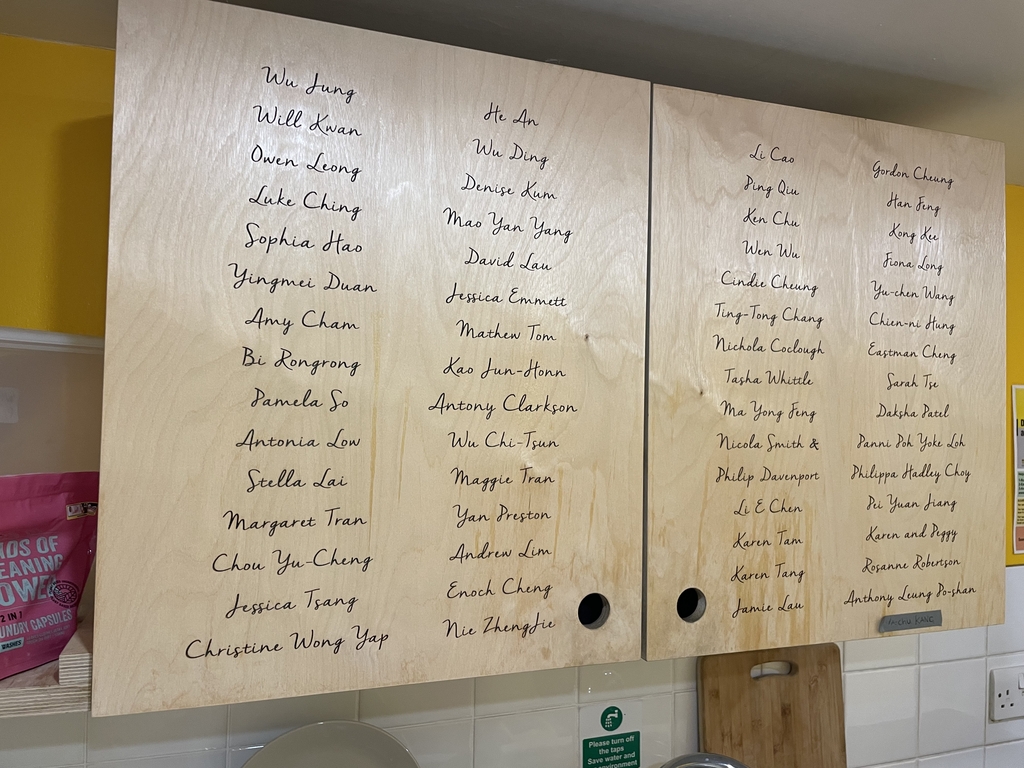 Wu Jung
Will Kwan
Owen Leong
Luke Ching
Sophia Hao
Yingmei Duan
Amy Cham
Bi Rongrong
Pamela So
Antonia Low
Stella Lai
Margaret Tran
Chou Yu-Cheng
Jessica Tsang
Christine Wong Yap
He An
Wu Ding
Denise Kum
Mao Yan Yang
David Lau
Jessica Emmett
Mathew Tom
Kao Jun-Honn
Antony Clarkson
Wu Chi-Tsun
Maggie Tran
Yan Preston
Andrew Lim
Enoch Cheng
Nie ZhengJie
Li Cao
Ping Qiu
Ken Chu
Wen Wu
Cindie Cheung
Ting-Tong Chang
Nichola Coclough
Tasha Whittle
Ma Yong Feng
Nicola Smith &
Philip Davenport
Li E Chen
Karen Tam
Karen Tang
Jamie Lau
Gordon Cheung
Han Feng
Kong Kee
Fiona Long
Yu-chen Wang
Chien-ni Hung
Eastman Cheng
Sarah Tse
Daksha Patel
Panni Poh Yoke Loh
Philippa Hadley Choy
Pei Yuan Jiang
Karen and Peggy
Rosanne Robertson
Anthony Leung Po-shan
OF
2 IN 1
CAPSULES
WASHES
Please turn off
the taps
Save water and
environment